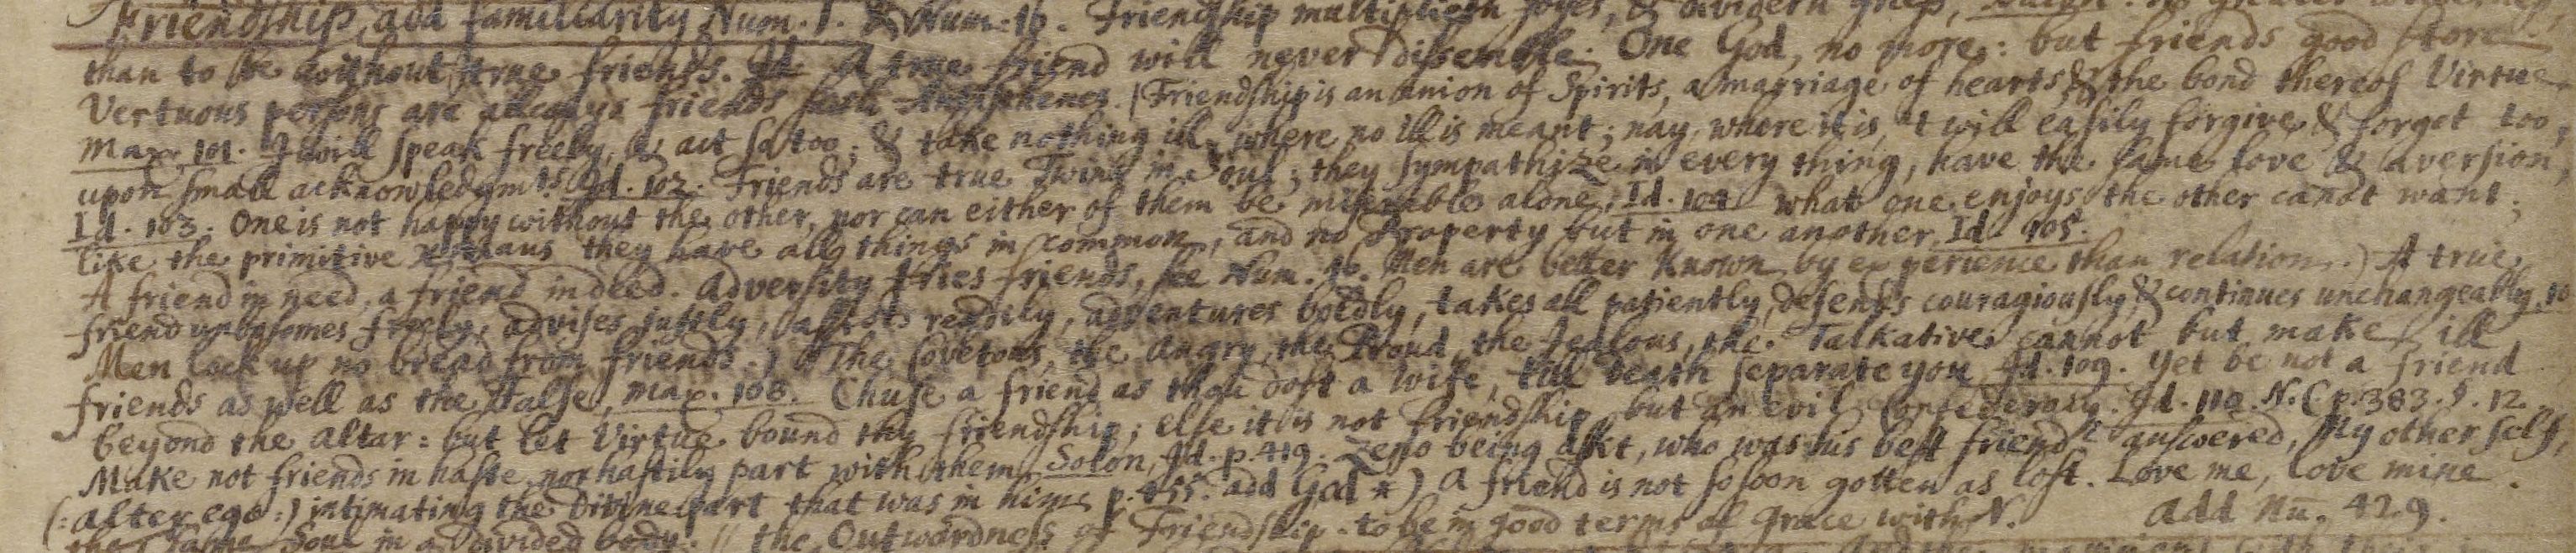 Friendship, add familiarity Num. 1. & Num. 16. Friendship multiplieth joyes, & divideth griefs,
than to be without true friends. Id. A true friend will never dissemble. One God, no more: but friends good store.
Vertuous persons are allways friends saith Antisthenes. | Friendship is an Union of Spirits, a marriage of hearts, & the bond thereof Virtue
Max. 101. I will speak freely, & act so too; & take nothing ill, where no ill is meant; nay, where it is, 't will easily forgive & forget too,
upon small acknowledgmts. Id. 102. Friends are true Twins in Soul; they sympathize in every thing, have the same love & aversion,
Id. 103. One is not happy without the other, nor can either of them be miserable alone, Id. 104 what one enjoys the other canot want;
like the primitive Xtians they have all things in common, and no Property but in one another, Id. 105.
A friend in need, a friend indeed. Adversity tries friends, see Num. 16. Men are better known by experience than relation.) A true
friend unbosomes freely, advises justly, assists readily, adventures boldly, takes all patiently, defends couragiously, & continues unchangeably
Men lock up no bread from friends.) The Covetous, the Angry, the Proud, the Jealous, the Talkative cannot but make ill
friends as well as the False, max. 108. Chuse a friend as thou dost a wife, till death separate you, Id. 109. Yet be not a friend
beyond the altar: but let Virtue bound thy friendship; else it is not friendship, but an evil Confederacy. Id. 110. N.C p. 383. §. 12.
Make not friends in haste, nor hastily part with them, Solon, Id. p. 419. Zeno being askt, who was his best friend? answered, My other self,
(:alter ego:) intimating the Divine part that was in him, p. 455. add God *) A friend is not so soon gotten as lost. Love me, love mine.
the same Soul in a Divided body. // the Outwardness of Friendship. to be in good terms of grace with N. Add Nu. 429.